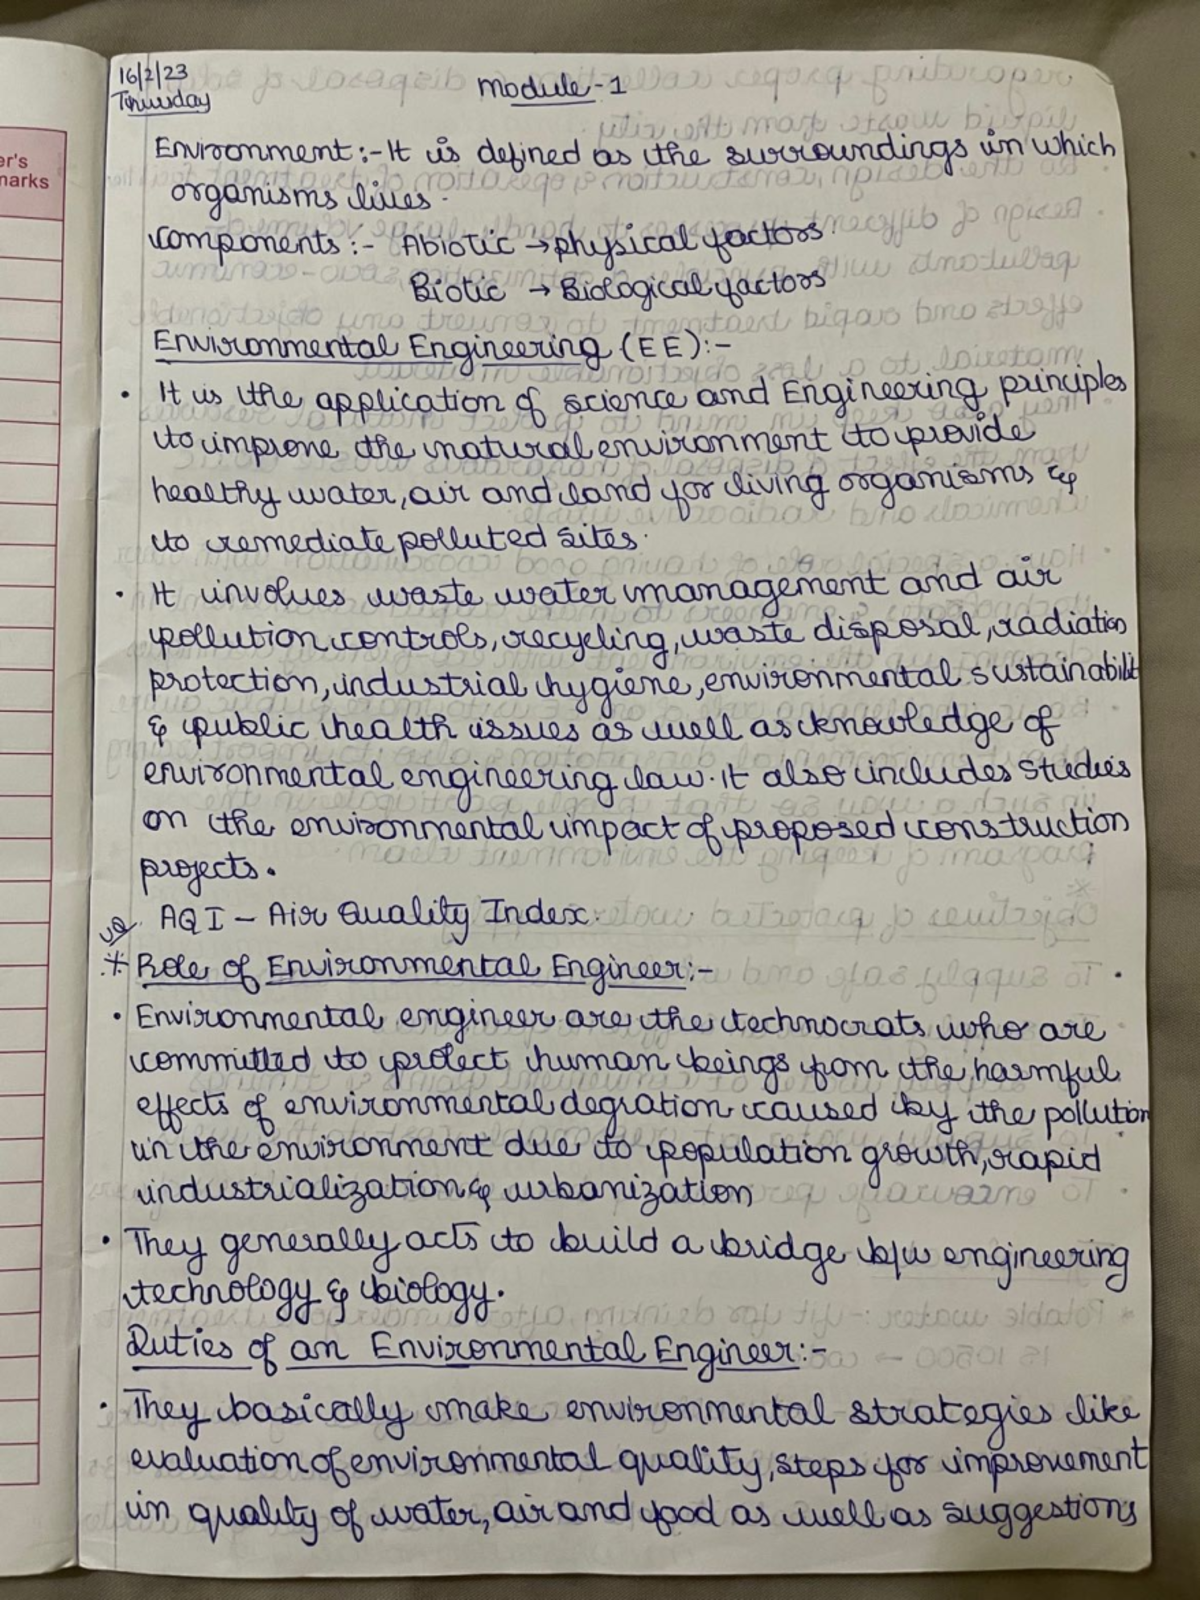 er's
marks
16/2/23
Thursday
Module-1
Environment:-It is defined as the surroundings in which
organisms lives.
Components:- Abiotic → physical factors.
Biotic → Biological factors
Environmental Engineering (EE):-
• It is the application of science and Engineering principles
to improve the natural environment to provide
healthy water, air and land for living organisms &
to remediate polluted sites.
• It involves waste water management and air
pollution controls, recycling, waste disposal, radiation
protection, industrial hygiene, environmental sustainabilit
& public health issues as well as knowledge of
environmental engineering law. it also includes studies
on the environmental impact of proposed construction
projects.
AQI - Air Quality Index.
* Role of Environmental Engineer:-
• Environmental engineer are the technocrats who are
committed to protect human beings from the harmful
effects of environmental degration caused by the pollution
in the environment due to population growth, rapid
industrialization & urbanization
• They generally acts to build a bridge b/w engineering
technology & biology.
Duties of an Environmental Engineer:-
• They basically make environmental strategies like
evaluation of environmental quality, steps for improvement
in quality of water, air and food as well as suggestions